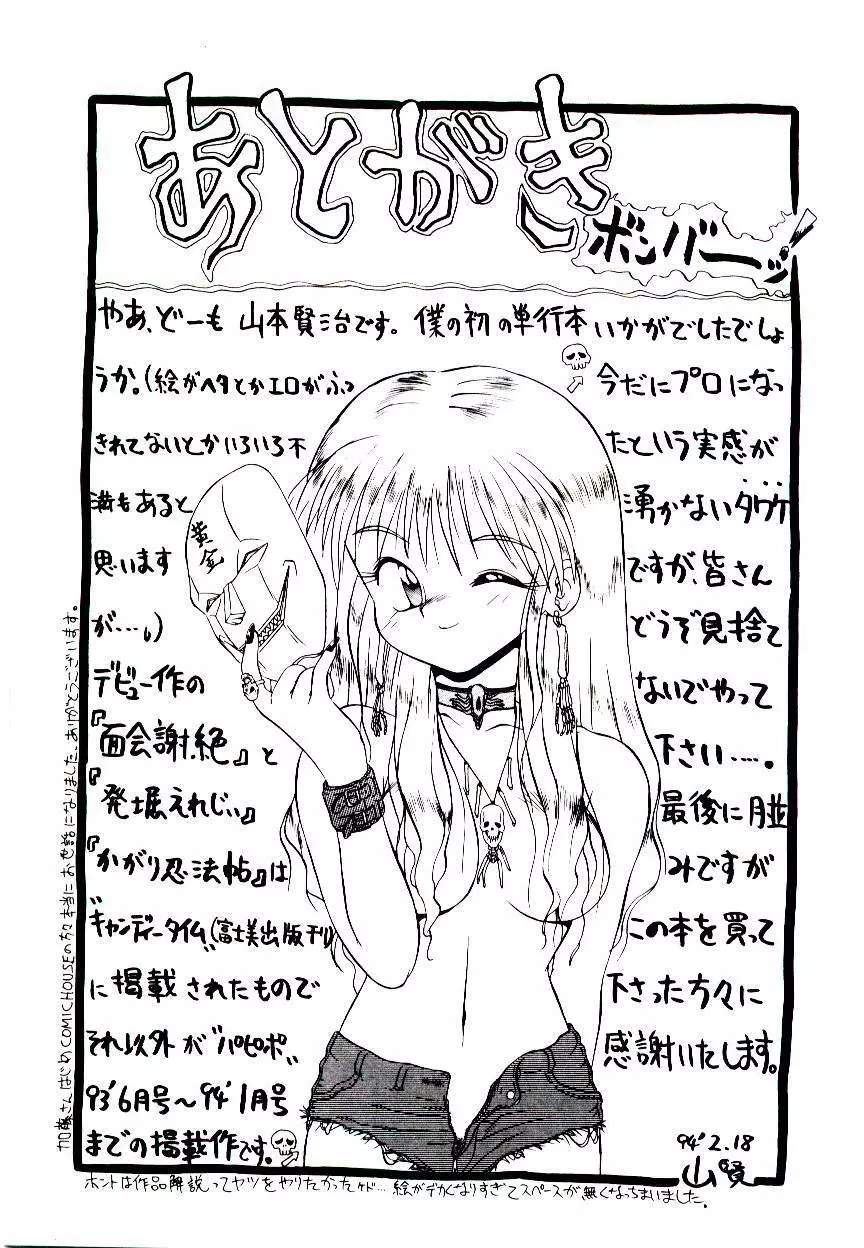 あとがき
ボンバーッ!
やあ、どーも 山本賢治です。僕の初の単行本いかがでしたでしょ
うか。(絵がヘタとかエロがふっ
きれてないとかいろいろ不
満もあると
思います
が…。)
デビュー作の
『面会謝絶』と
『発掘えれじい』
『かがり忍法帖』は
"キャンディータイム"(富士美出版刊)
に掲載されたもので
それ以外が"パピポ"
93'6月号〜94'1月号
までの掲載作です。
今だにプロになっ
たという実感が
湧かないタワケ
ですが、皆さん
どうぞ見捨て
ないでやって
下さい….。
最後に月並
みですが
この本を買って
下さった方々に
感謝いたします。
94'2.18
山賢
黄金
加藤さんはじめCOMIC HOUSEの方々本当にお世話になりました。ありがとうございます。
ホントは作品解説ってヤツをやりたかったケド…絵がデカくなりすぎてスペースが無くなっちまいました。